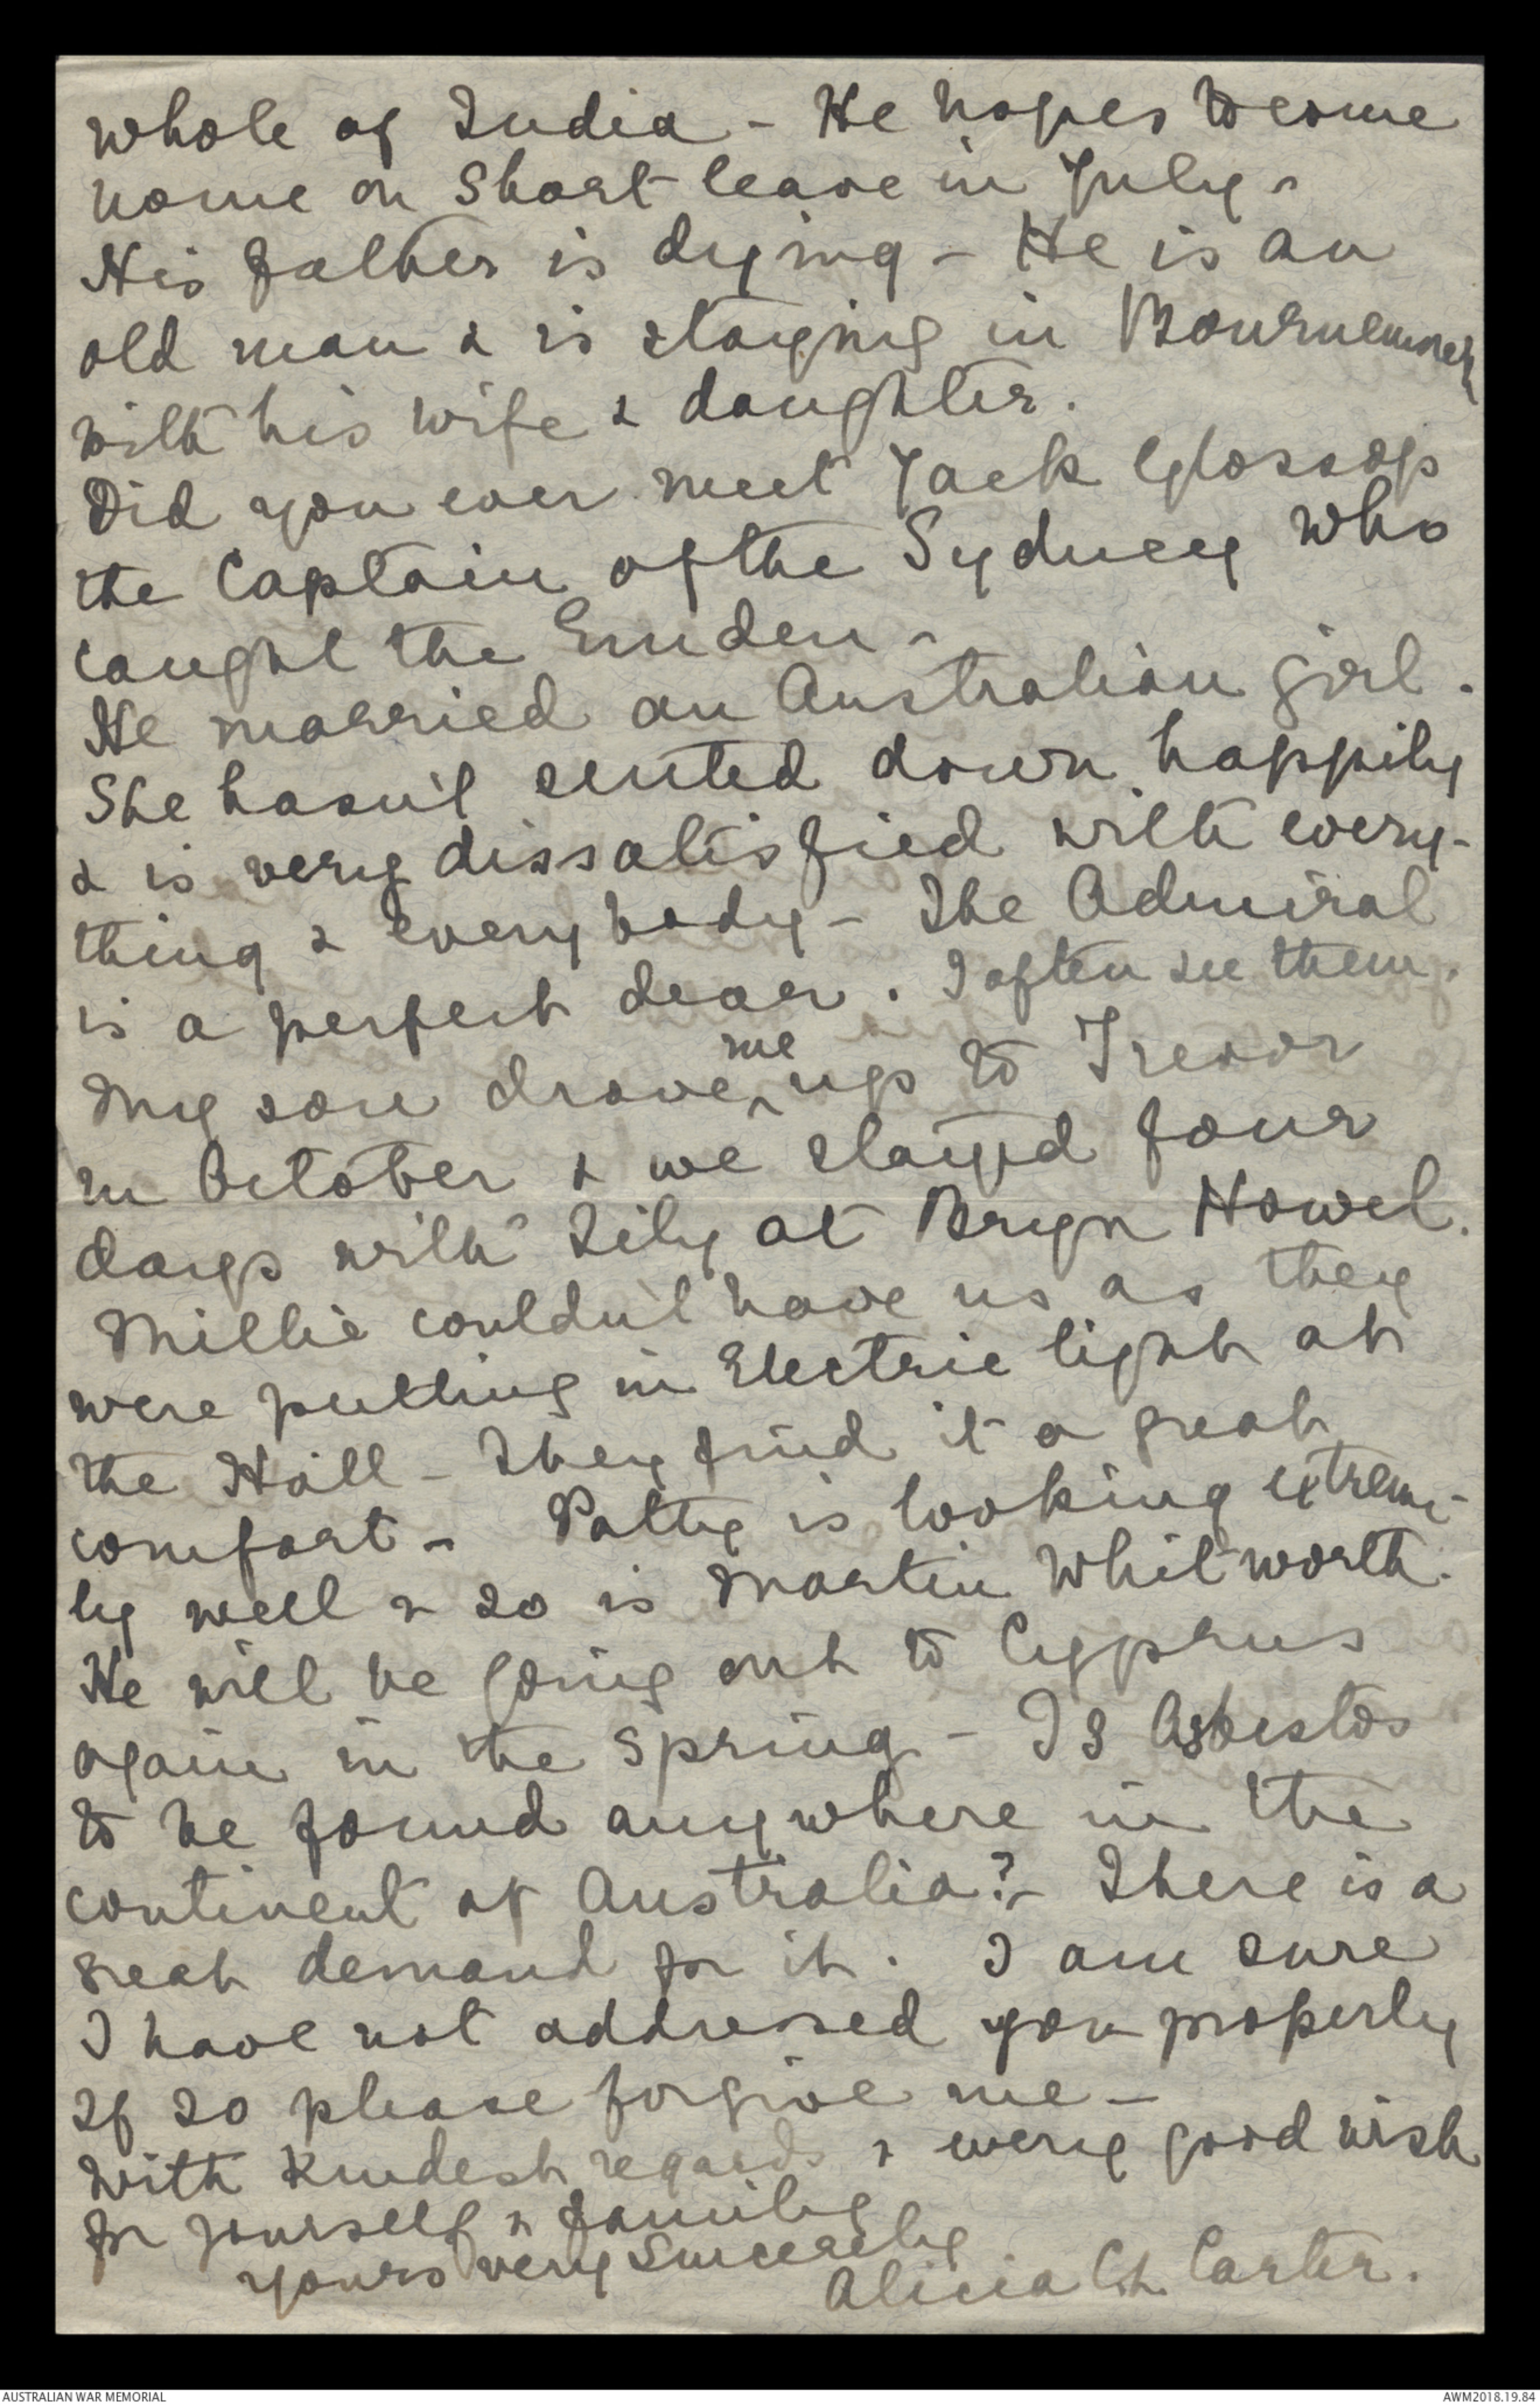 whole of India - He hopes to come
home on Short leave in July -
His father is dying - He is an
old man & is staying in Bournemouth
with his wife & daughter.
Did you ever meet Jack Glossop
the Captain of the Sydney who
caught the Emden -
He married an Australian girl.
She hasn't settled down happily
& is very dissatisfied with every-
thing & everybody - The Admiral
is a perfect dear. I often see them.
My son drove me up to Trevor
in October & we stayed four
days with Lily at Bryn Howel.
Millie couldn't have us as they
were putting in Electric light at
the Hall - They find it a great
comfort - Patty is looking extreme-
ly well & so is Martin Whitworth.
He will be going out to Cyprus
again in the Spring - Is Asbestos
to be found anywhere in the
continent of Australia? - There is a
great demand for it. I am sure
I have not addressed you properly
If so please forgive me -
With Kindest regards & every good wish
for yourself & family
yours very Sincerely
Alicia Ch. Carter.
AUSTRALIAN WAR MEMORIAL
AWM2018.19.84